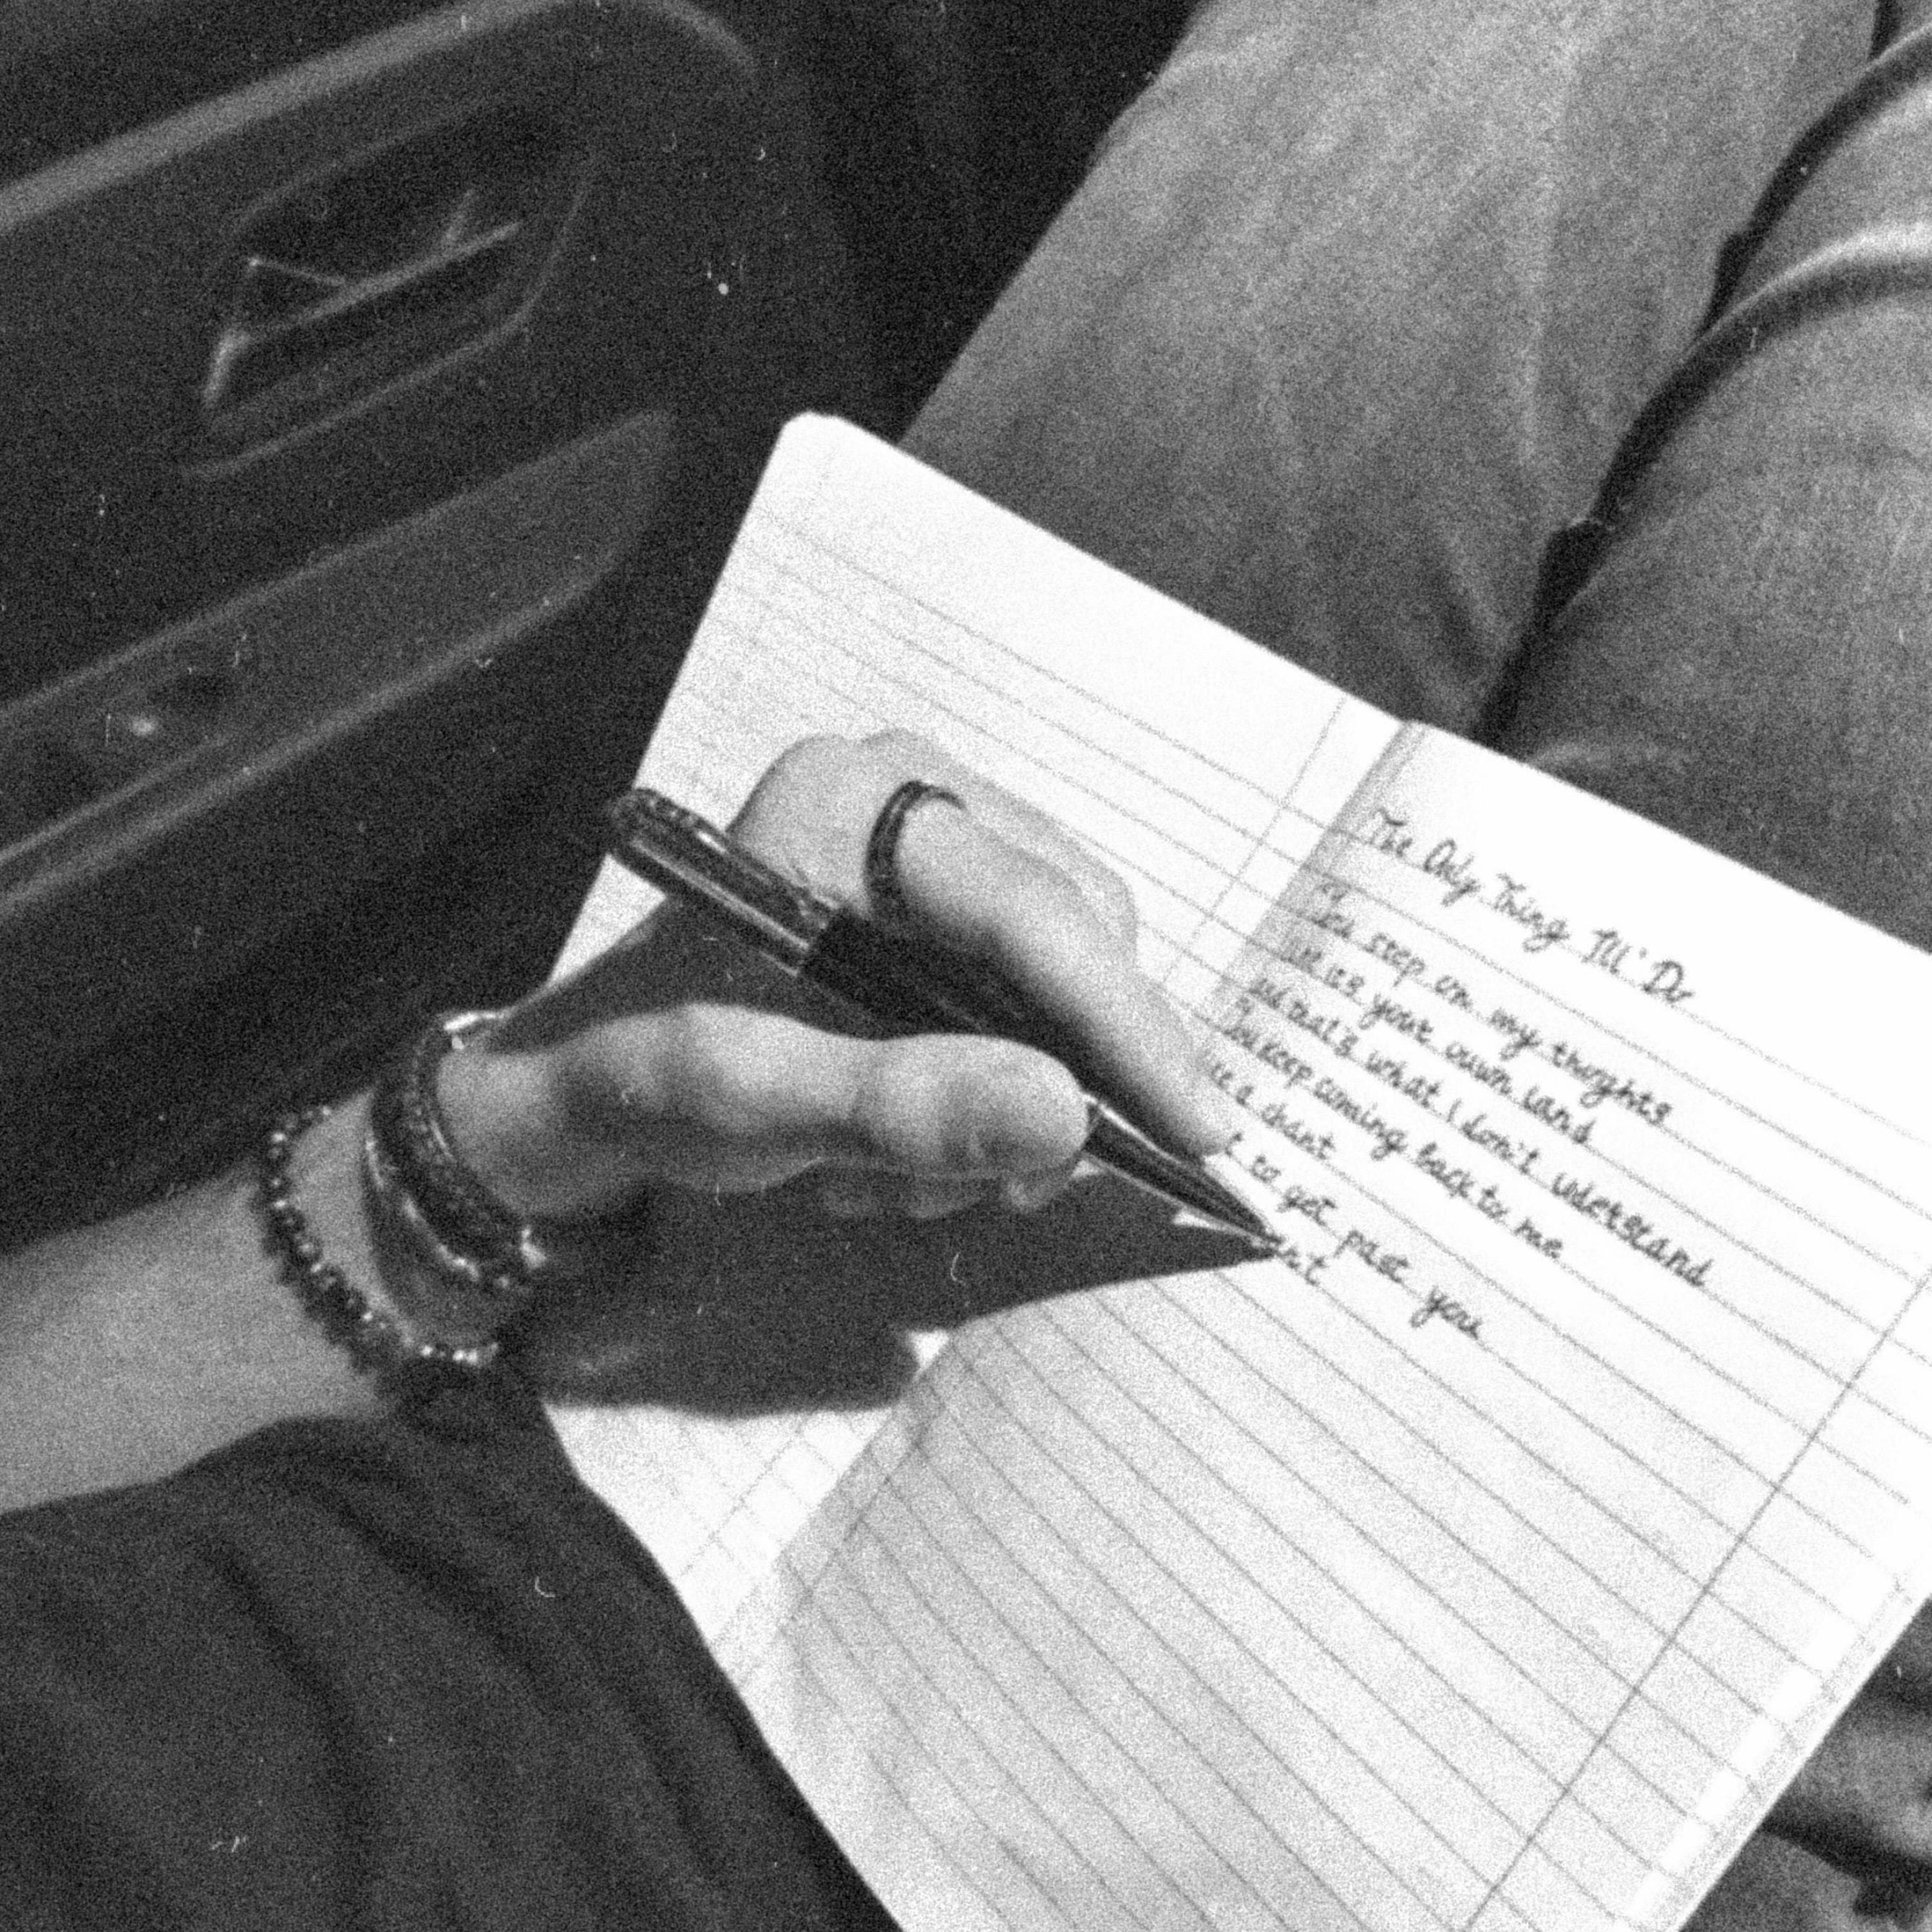 The Only Thing I'll Do
You step on my thoughts
like it's your own land
and that's what I don't understand
You keep coming back to me
like a chant
t to get past you
n't